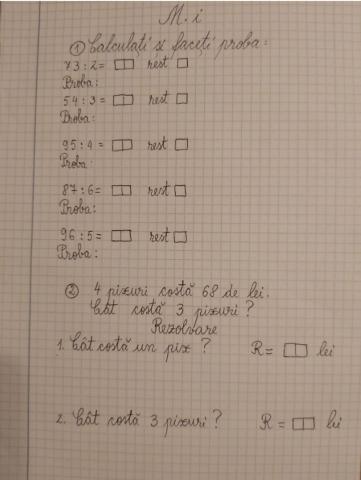 M. i
① Calculați și faceți proba:
73 : 2 = rest
Proba:
54 : 3 = rest
Proba:
95 : 4 = rest
Proba:
87 : 6 = rest
Proba:
96 : 5 = rest
Proba:
② 4 pixuri costă 68 de lei.
Cât costă 3 pixuri?
Rezolvare
1. Cât costă un pix? R = lei
2. Cât costă 3 pixuri? R = lei